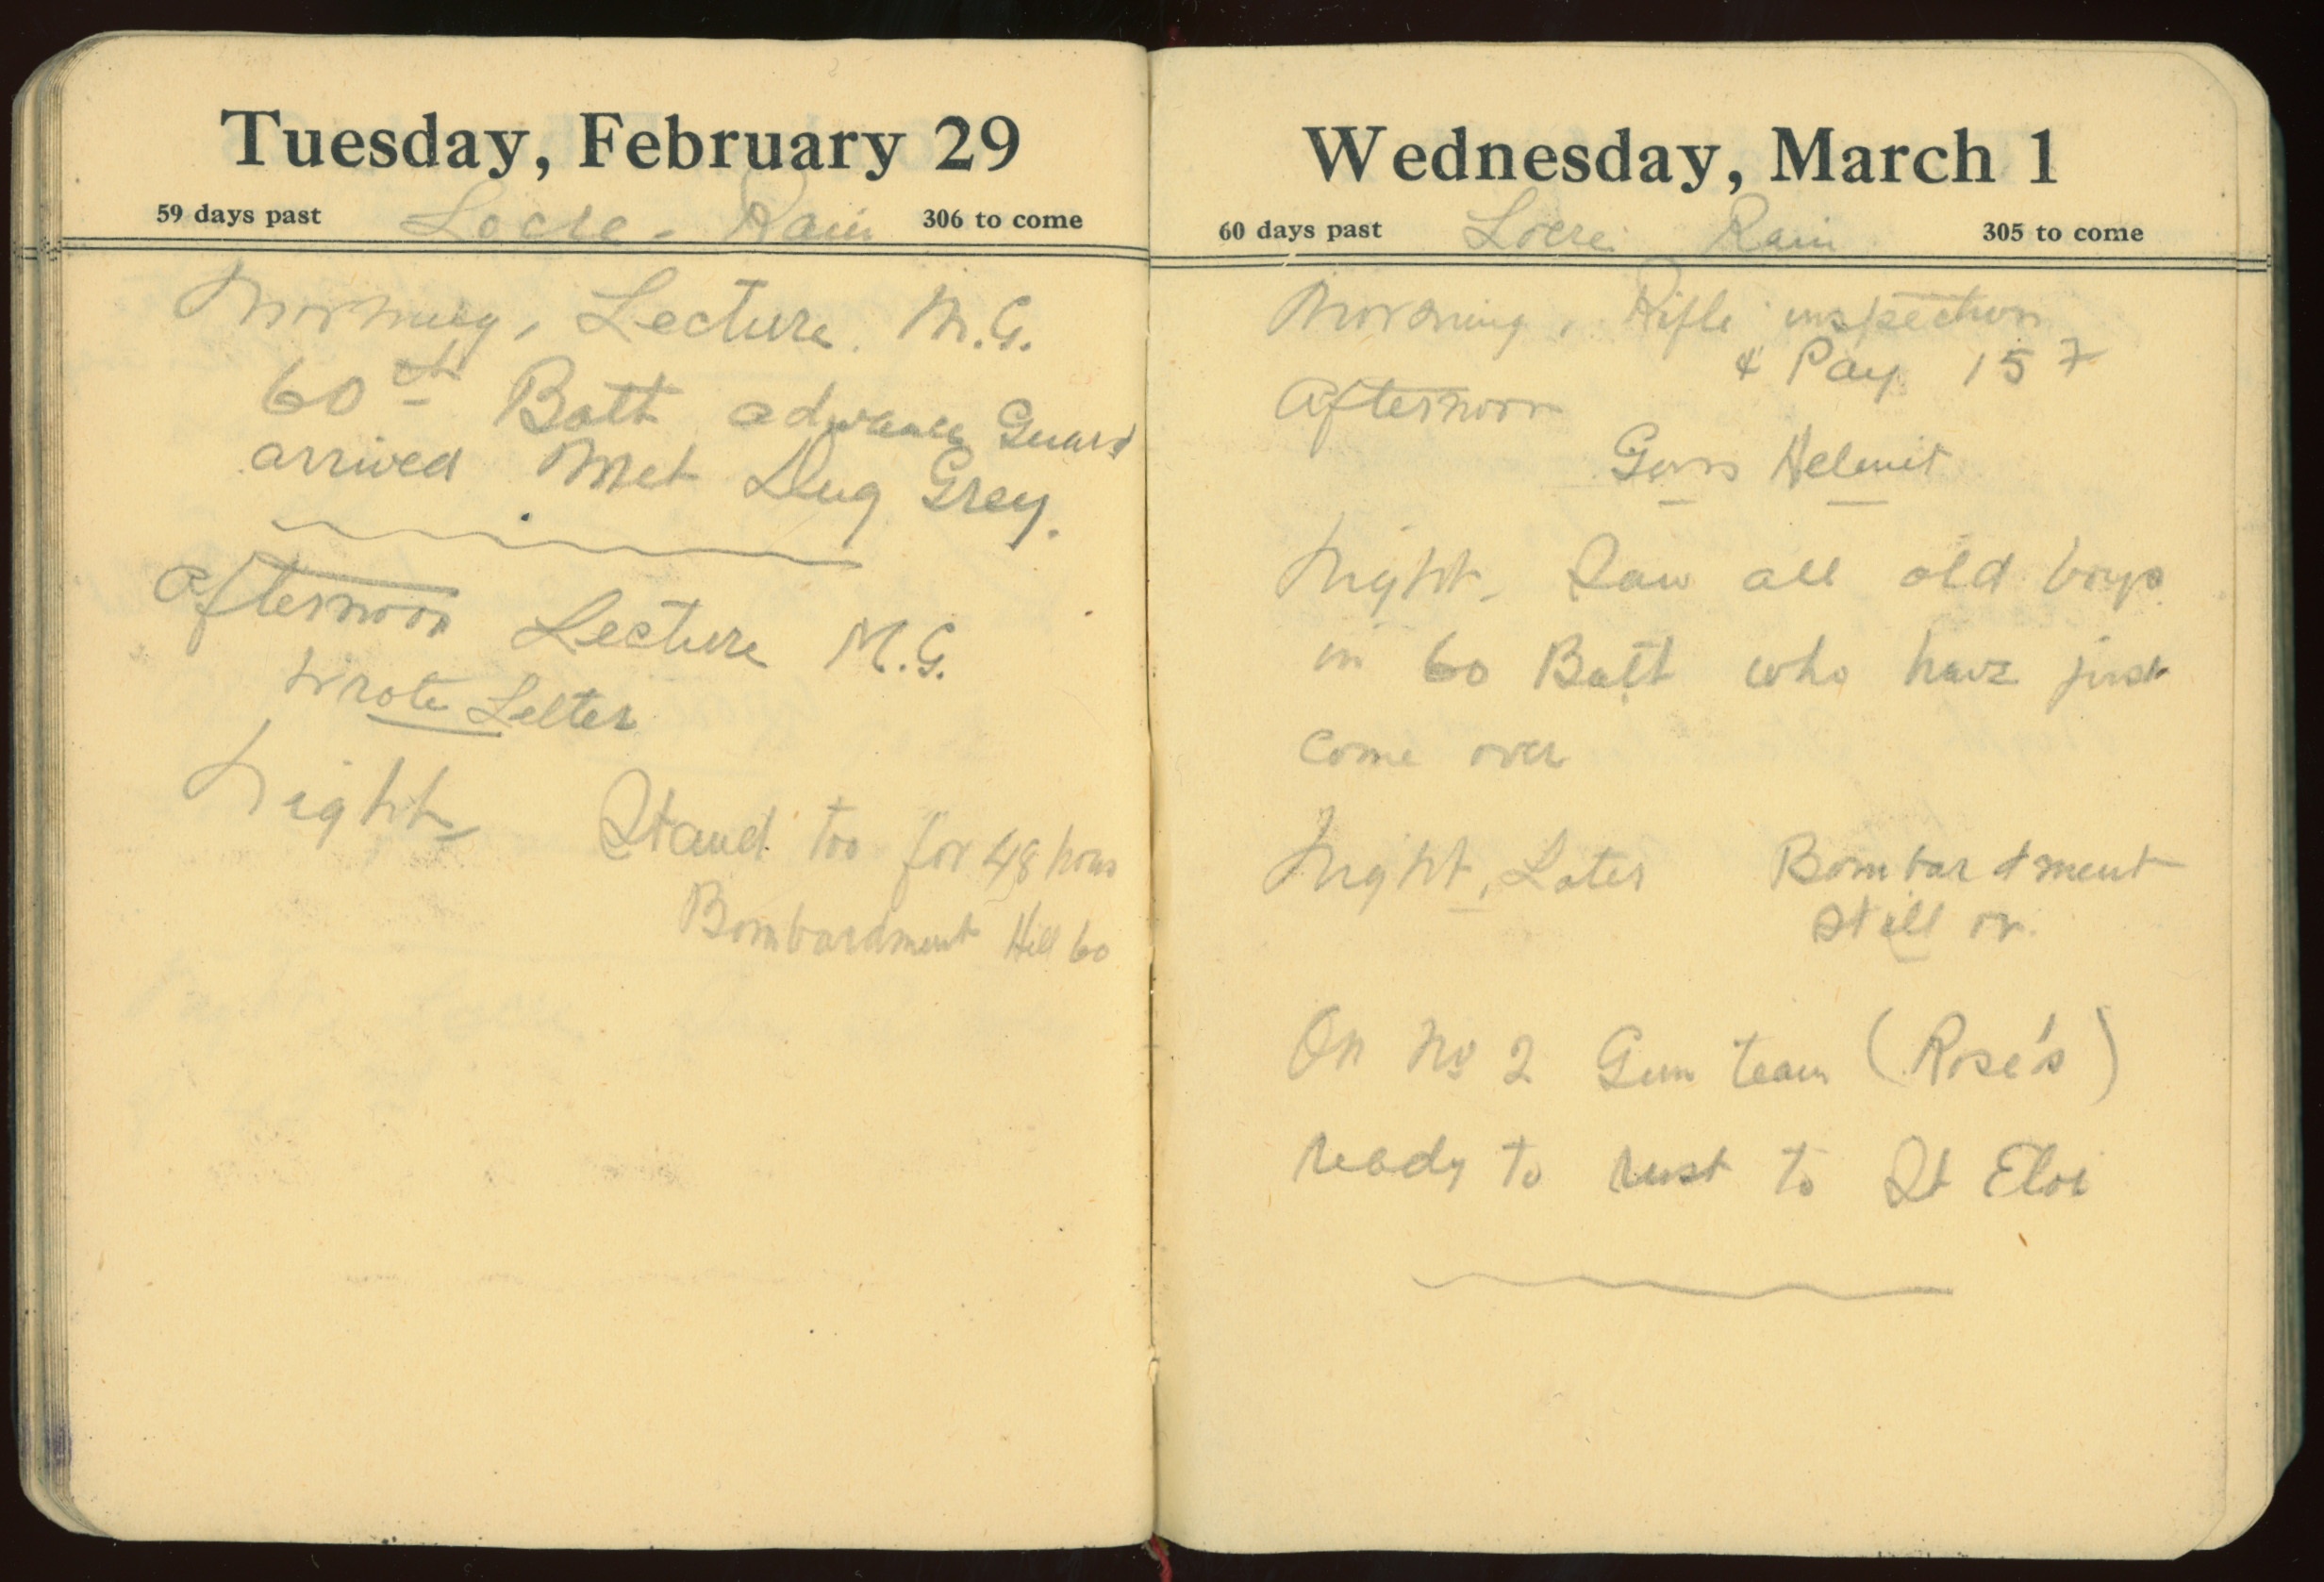 Tuesday, February 29
59 days past Locre - Rain 306 to come
Morning, Lecture. M.G.
60th Batt advance Guard
arrived Met Dug Grey.
Afternoon Lecture M.G.
Wrote Letter
Night Stand too for 48 hours
Bombardment Hill 60
Wednesday, March 1
60 days past Locre Rain 305 to come
Morning, Rifle inspection
& Pay 15
Afternoon
Helmit
Night. Saw all old boys
in 60 Batt who have just
come over
Night, Later Bombardment
still on.
On No 2 Gun team (Rose's)
ready to to St Eloi